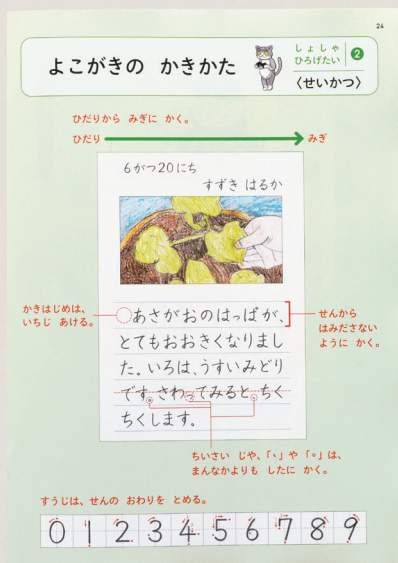 24
よこがきの かきかた
しょしゃ
ひろげたい
2
〈せいかつ〉
ひだりから みぎに かく。
ひだり
みぎ
6がつ20にち
すずき はるか
かきはじめは、
いちじ あける。
あさがおのはっぱが、
とてもおおきくなりまし
た。いろは、うすいみどり
です。さわってみると、ちく
ちくします。
せんから
はみださない
ように かく。
ちいさい じや、「、」や「。」は、
まんなかよりも したに かく。
すうじは、せんの おわりを とめる。
0 1 2 3 4 5 6 7 8 9